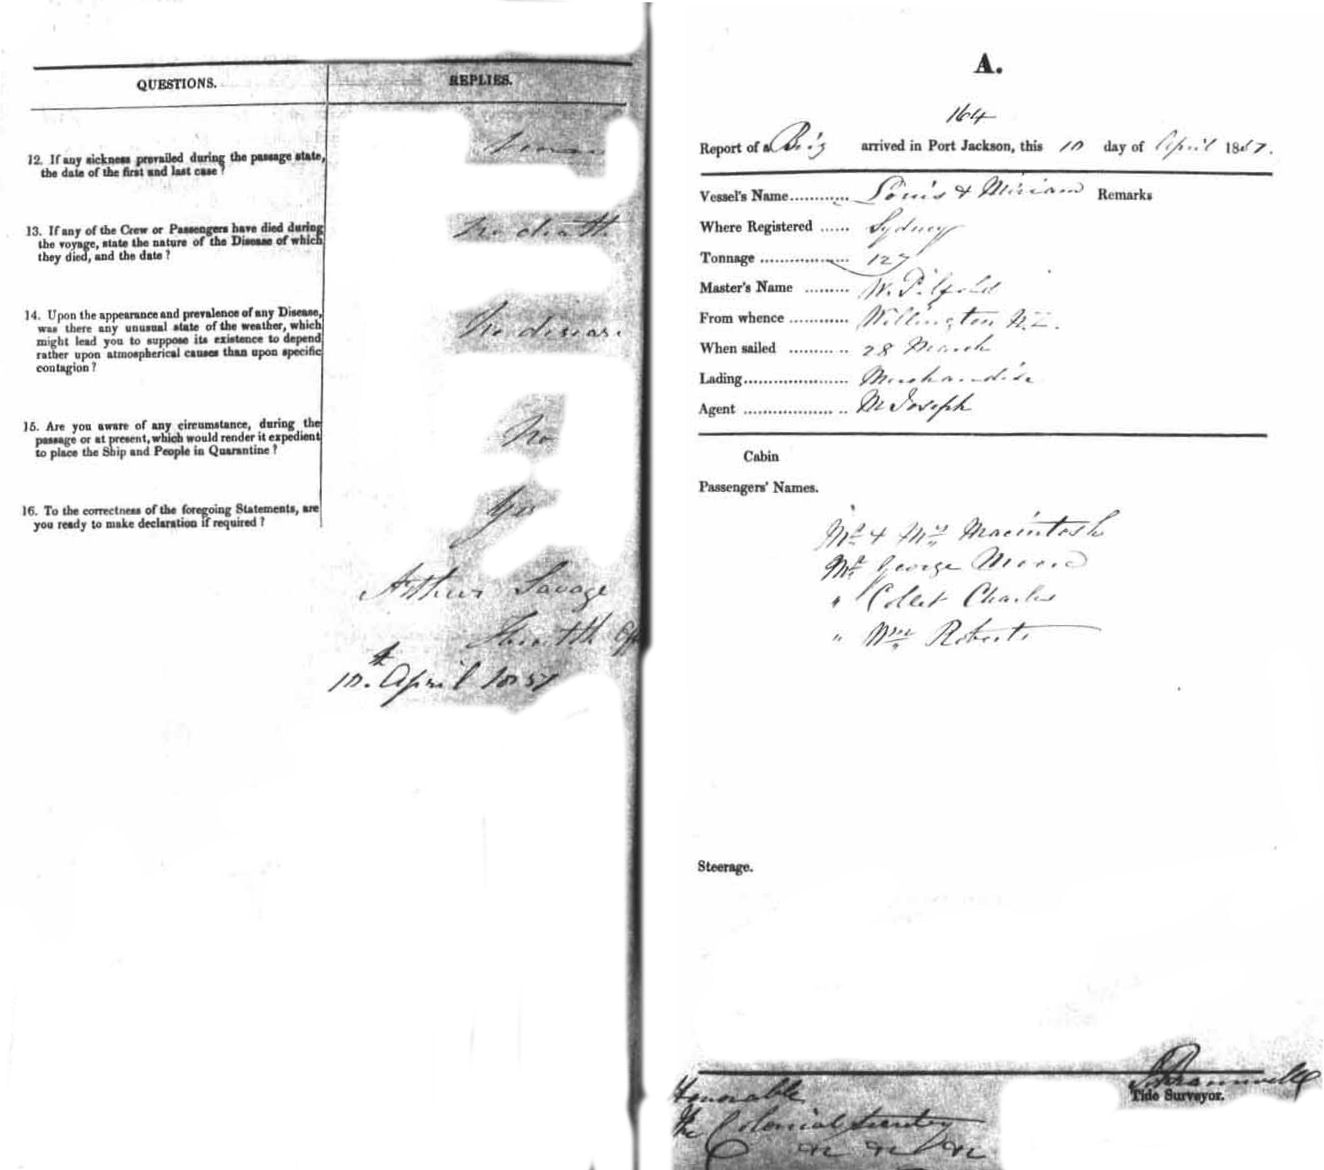 QUESTIONS. REPLIES.
12. If any sickness prevailed during the passage state,
the date of the first and last case?
13. If any of the Crew or Passengers have died during
the voyage, state the nature of the Disease of which
they died, and the date?
No death
14. Upon the appearance and prevalence of any Disease,
was there any unusual state of the weather, which
might lead you to suppose its existence to depend
rather upon atmospherical causes than upon specific
contagion?
No disease
15. Are you aware of any circumstance, during the
passage or at present, which would render it expedient
to place the Ship and People in Quarantine?
No
16. To the correctness of the foregoing Statements, are
you ready to make declaration if required?
Yes
Arthur Savage
Health Off
10th April 1857
A.
164
Report of a Brig arrived in Port Jackson, this 10 day of April 1857.
Vessel's Name........... Louis & Miriam Remarks
Where Registered ...... Sydney
Tonnage .................. 127
Master's Name ......... W. Pilfold
From whence ............ Wellington N.Z.
When sailed ............ 28 March
Lading..................... Merchandise
Agent .................... M Joseph
Cabin
Passengers' Names.
Mr & Mrs Macintosh
Mr George
" Collet Charles
" Wm Roberts
Steerage.
Tide Surveyor.
Honorable
The Colonial Secretary